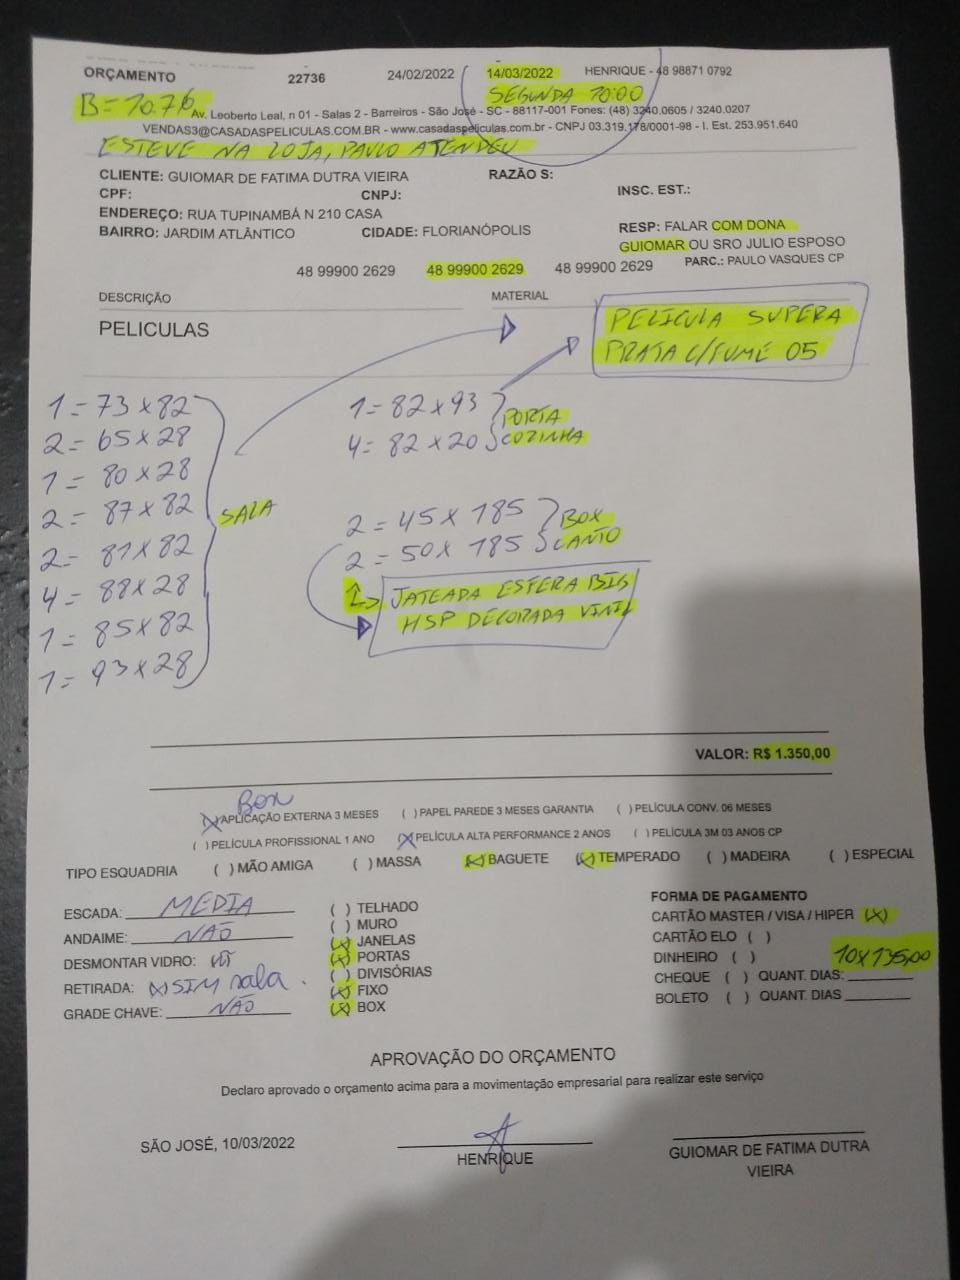 ORÇAMENTO 22736 24/02/2022 14/03/2022 HENRIQUE - 48 98871 0792
B=10.76 SEGUNDA 10:00
Av. Leoberto Leal, n 01 - Salas 2 - Barreiros - São José - SC - 88117-001 Fones: (48) 3240.0605 / 3240.0207
VENDAS3@CASADASPELICULAS.COM.BR - www.casadaspeliculas.com.br - CNPJ 03.319.178/0001-98 - I. Est. 253.951.640
ESTEVE NA LOJA, PAULO ATENDEU
CLIENTE: GUIOMAR DE FATIMA DUTRA VIEIRA RAZÃO S:
CPF: CNPJ: INSC. EST.:
ENDEREÇO: RUA TUPINAMBÁ N 210 CASA
BAIRRO: JARDIM ATLÂNTICO CIDADE: FLORIANÓPOLIS RESP: FALAR COM DONA
GUIOMAR OU SRO JULIO ESPOSO
48 99900 2629 48 99900 2629 48 99900 2629 PARC.: PAULO VASQUES CP
DESCRIÇÃO MATERIAL
PELICULAS
PELICULA SUPERA
PRATA C/FUMÊ 05
1=73x82
2=65x28
1=80x28
2=87x82
2=81x82
4=88x28
1=85x82
1=93x28
SALA
1=82x93 PORTA
4=82x20 COZINHA
2=45x185 BOX
2=50x185 CANTO
JATEADA ESFERA BIG
HSP DECORADA VINIL
VALOR: R$ 1.350,00
Box
(X)APLICAÇÃO EXTERNA 3 MESES ( ) PAPEL PAREDE 3 MESES GARANTIA ( ) PELÍCULA CONV. 06 MESES
( ) PELÍCULA PROFISSIONAL 1 ANO (X)PELÍCULA ALTA PERFORMANCE 2 ANOS ( ) PELÍCULA 3M 03 ANOS CP
TIPO ESQUADRIA ( ) MÃO AMIGA ( ) MASSA (X)BAGUETE (X)TEMPERADO ( ) MADEIRA ( ) ESPECIAL
ESCADA: MEDIA
ANDAIME: NÃO
DESMONTAR VIDRO:
RETIRADA: (X)SIM sala.
GRADE CHAVE: NÃO
( ) TELHADO
( ) MURO
(X) JANELAS
(X) PORTAS
( ) DIVISÓRIAS
(X) FIXO
(X) BOX
FORMA DE PAGAMENTO
CARTÃO MASTER / VISA / HIPER (X)
CARTÃO ELO ( )
DINHEIRO ( ) 10x135,00
CHEQUE ( ) QUANT. DIAS:
BOLETO ( ) QUANT. DIAS
APROVAÇÃO DO ORÇAMENTO
Declaro aprovado o orçamento acima para a movimentação empresarial para realizar este serviço
SÃO JOSÉ, 10/03/2022
HENRIQUE
GUIOMAR DE FATIMA DUTRA
VIEIRA